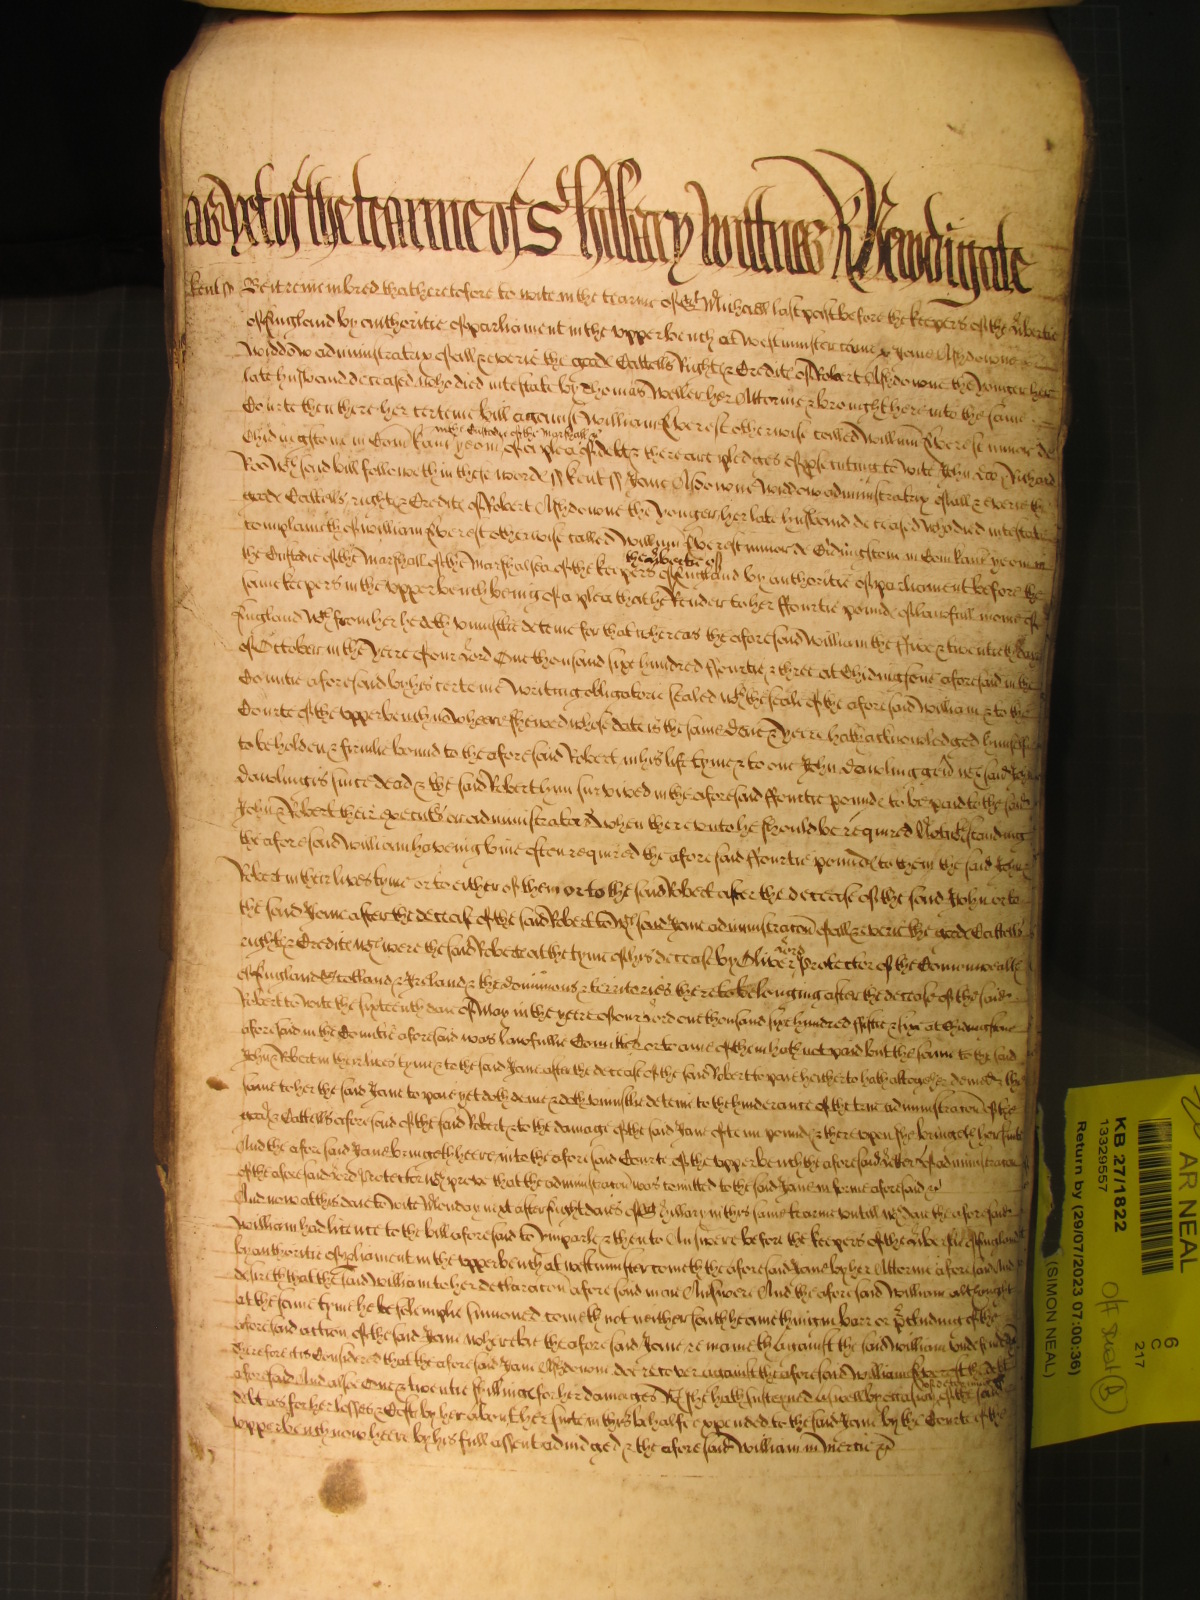 as yet of the tearme of St Hillary Wittnes R Newdigate
kent ss Be it remembred that heretofore to wite in the tearme of St Michaell last past before the keepers of the libertie
of England by authoritie of parliament in the upper bench at Westminster came Jane Ashdowne
widdow administratrix of all & everie the goode Cattells Rights & Credits of Robert Ashdowne the Yonger her
late husband deceased who died intestate by Thomas Weller her Attorne & brought here into the same
Courte then there her certeine bill against William Everest otherwise called William Everest minor de
Chidingstone in Com Kanc yeom in the Custodie of the Marshall &c of a plea of debt & there are pledges of psecuting to wite John Doo & Richard
Roo Wch said bill followeth in these words ss kent ss Jane Ashdowne Widdow administratrix of all & everie the
goode Cattells rights & Credits of Robert Ashdowne the Yonger her late husband deceased who died intestate
complaineth of William Everest otherwise called William Everest minor de Chidingstone in Com Kanc yeoman in
the Custodie of the Marshall of the Marshalsea of the keepers of the libertie of England by authoritie of parliament before the
same keepers in the upper bench being of a plea that he Render to her ffourtie pounds of lawfull monie of
England Wch from her he doth uniustlie deteine for that whereas the aforesaid William the five & twentieth daie
of October in the yeere of our Lord One thousand six hundred ffourtie & three at Chidingstone aforesaid in the
Countie aforesaid by his certeine Writing obligatorie sealed wth the seale of the aforesaid William & to the
Courte of the upper bench now heere shewed whose date is the same daie & yeere hath acknowledged himselfe
to be holden & firmlie bound to the aforesaid Robert in his life tyme & to one John Dowling wch said John
Dowling is since dead & the said Robert him survived in the aforesaid ffourtie pounds to be paid to the said
John & Robert their executors or administrators when thereunto he should be required Notwithstanding
the aforesaid William haveing bine often required the aforesaid ffourtie pounds to them the said John &
Robert in their lives tyme or to either of them or to the said Robert after the decease of the said John or to
the said Jane after the decease of the said Robert to wch said Jane administracon of all & everie the goode Cattells
rights & Credits wch were the said Roberts at the tyme of his decease by Oliver Lord Protector of the Comonwealth
of England Scotland & Ireland & the dominions & territories thereto belonging after the decease of the said
Robert to wite the sixteenth daie of May in the yeere of our Lord one thousand six hundred fiftie & six at Chidingstone
aforesaid in the Countie aforesaid was lawfullie Comitted or to anie of them hath not paid but the same to the said
John & Robert in their lives tyme & to the said Jane after the decease of the said Robert to paie heitherto hath altogether denied & the
same to her the said Jane to paie yet doth denie & doth uniustlie deteine to the hinderance of the true administracon of the
goods & Cattells aforesaid of the said Robert & to the damage of the said Jane of tenn pounds & thereupon she bringeth her suite
And the aforesaid Jane bringeth heere into the aforesaid Courte of the upper bench the aforesaid letters of administracon
of the aforesaid Lord Protector wch prove that the administracon was comitted to the said Jane in forme aforesaid &c
And now at this daie to wite Monday next after eight daies of St Hyllary in this same tearme untill wch daie the aforesaid
William had licence to the bill aforesaid to Imparle & then to Answere before the keepers of the libertie of England
by authoritie of pliament in the upper bench at westminster cometh the aforesaid Jane by her Attorne aforesaid And
desireth that the said William to her declaracon aforesaid maie Answere And the aforesaid William althought
at the same tyme he be solemplie sumoned cometh not neither saith he anie thing in barr or pcluding of the
aforesaid action of the said Jane whereby the aforesaid Jane remaineth against the said William undefended
Therefore it is Considered that the aforesaid Jane Ashdowne doe recover against the aforesaid William Everest the debt
aforesaid And allsoe One & twentie shillings for her damages Wch she hath susteyned as well by occasion of the said
debt as for her losses & Costs by her about her suite in this behalfe expended to the said Jane by the Courte of the
upper bench now heere by his full assent adiudged & the aforesaid William in Mercie &c
AR NEAL
6
C
217
KB 27/1822
13329557
Return by (29/07/2023 07:00:36)
(SIMON NEAL)